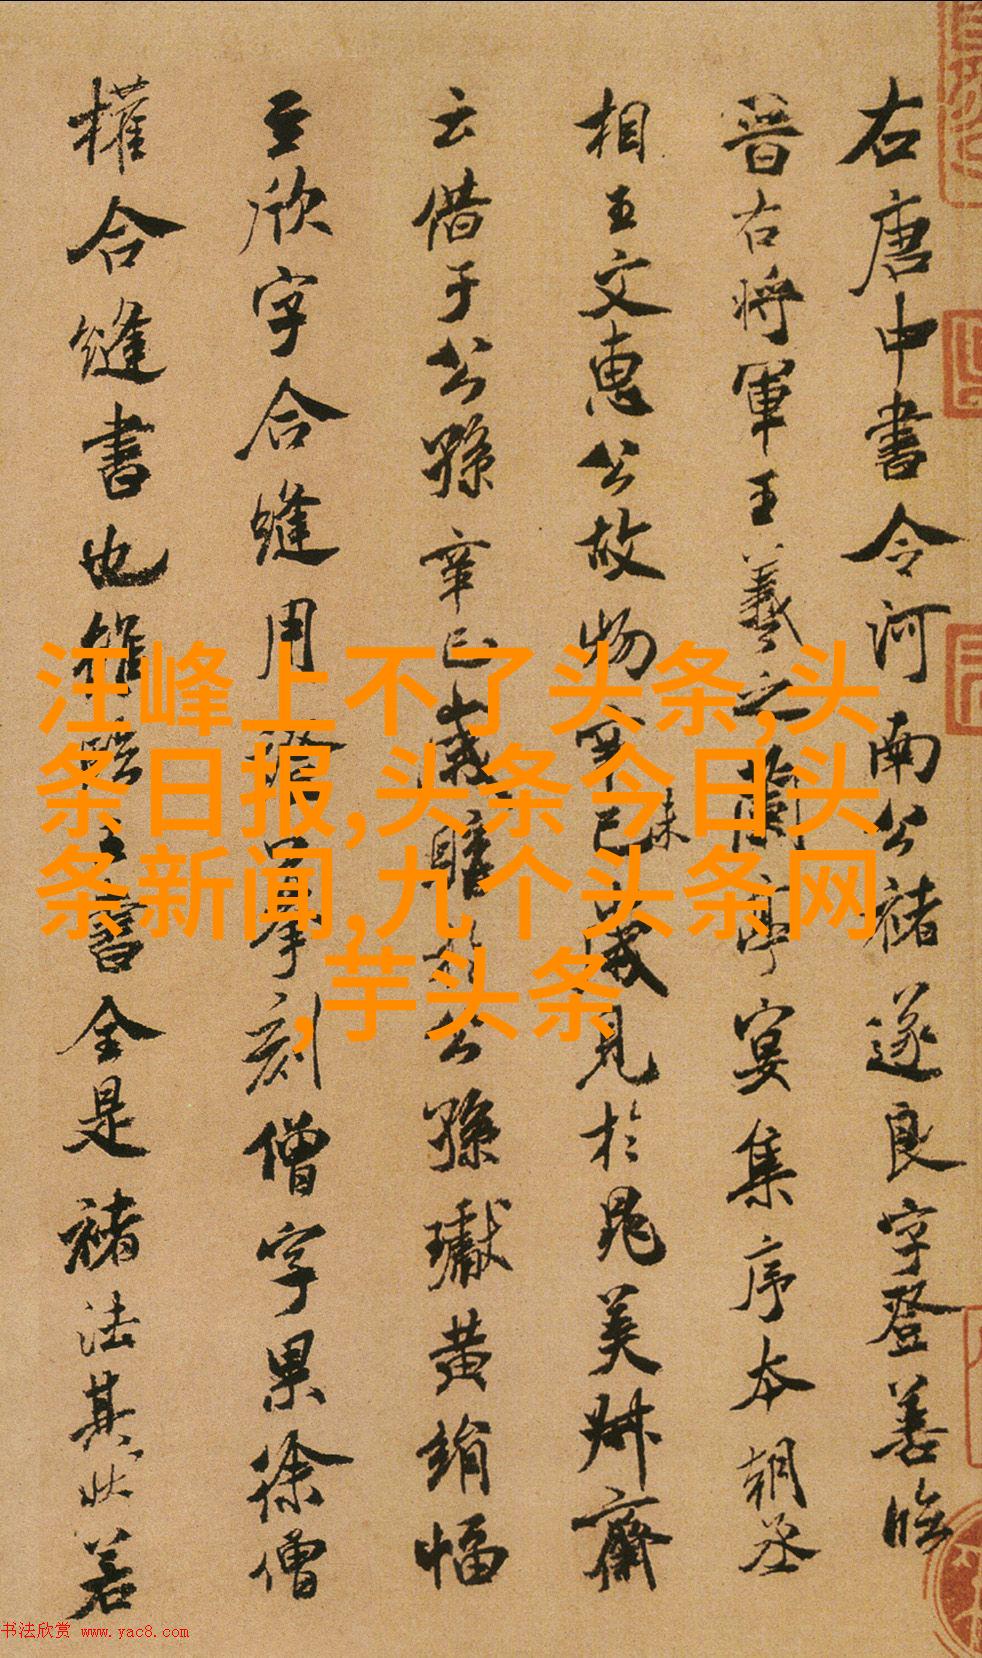 右唐中書令河南公褚遂良字登善臨
晉右將軍王羲之蘭亭宴集序本朝丞
相王文惠公故物辛巳歲見於晁美叔齋
未
云借于公孫辛巳歲購於公孫瓛黄絹幅
至欣字合縫用證摹刻僧字果徐僧
權合縫書也雖臨王書全是褚法其狀若
汪峰上不了头条,头
条日报,头条今日头
条新闻,九个头条网
,芋头条
书法欣赏 www.yac8.com